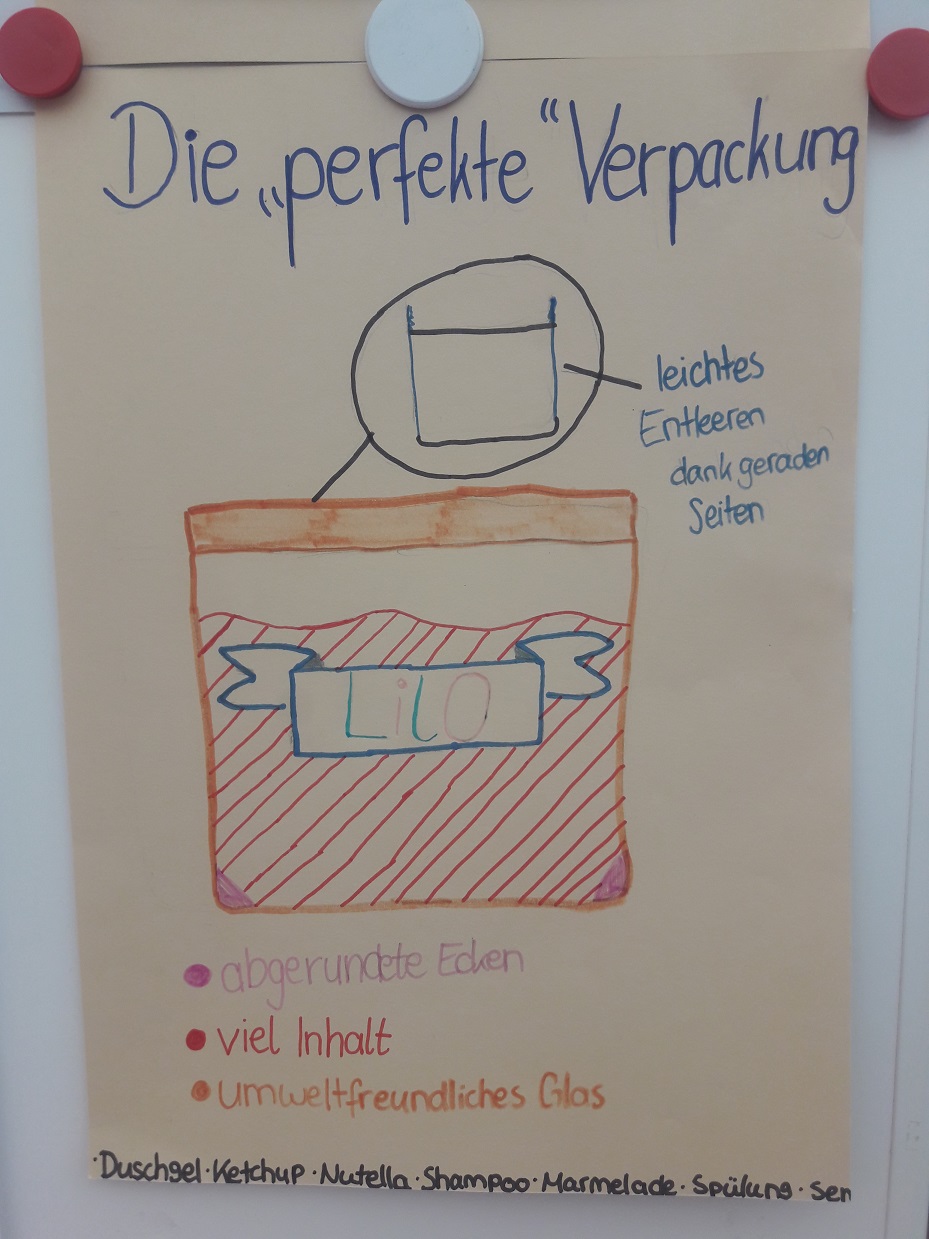 Die „perfekte“ Verpackung
leichtes
Entleeren
dank geraden
Seiten
LilO
• abgerundete Ecken
• viel Inhalt
• umweltfreundliches Glas
·Duschgel·Ketchup·Nutella·Shampoo·Marmelade·Spülung·Sen